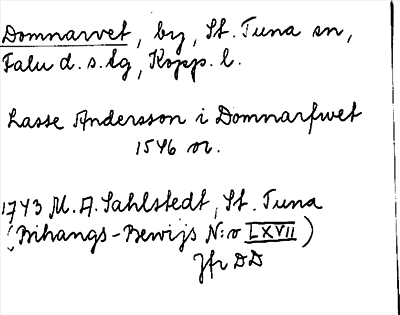 Domnarvet, by, St. Tuna sn,
Falu d. s. lg, Kopp. l.
Lasse Andersson i Domnarfwet
1546 or.
1743 M. A. Sahlstedt, St. Tuna
(Bihangs-Bewijs N:o LXVII)
Jfr DD